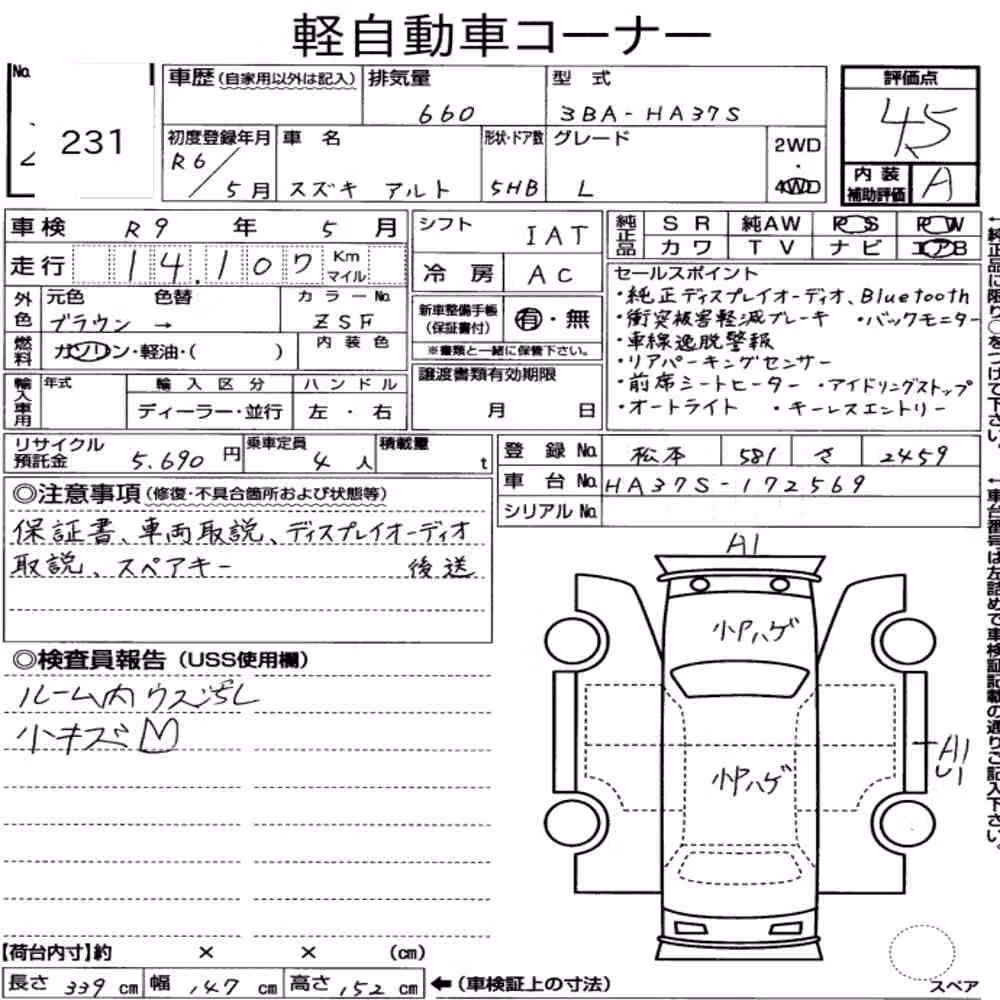 軽自動車コーナー
No.
231
車歴(自家用以外は記入)
排気量
660
型式
3BA-HA37S
評価点
4.5
初度登録年月
R6/5月
車名
スズキ アルト
形状・ドア数
5HB
グレード
L
2WD
・
4WD
内装
補助評価
A
車検 R9年 5月
走行 14,107 Km
マイル
シフト
IAT
冷房 AC
純正品
SR 純AW PS PW
カワ TV ナビ エアB
外色
元色 色替
ブラウン →
カラーNo.
ZSF
燃料
ガソリン・軽油・( )
内装色
新車整備手帳
(保証書付)
有・無
※書類と一緒に保管下さい。
セールスポイント
・純正ディスプレイオーディオ、Bluetooth
・衝突被害軽減ブレーキ ・バックモニター
・車線逸脱警報
・リアパーキングセンサー
・前席シートヒーター ・アイドリングストップ
・オートライト ・キーレスエントリー
輸入車用
年式
輸入区分
ハンドル
ディーラー・並行
左・右
譲渡書類有効期限
月 日
リサイクル
預託金
5.690円
乗車定員
4人
積載量
t
登録No. 松本 581 さ 2459
車台No. HA37S-172569
シリアルNo.
◎注意事項(修復・不具合箇所および状態等)
保証書、車両取説、ディスプレイオーディオ
取説、スペアキー 後送
◎検査員報告(USS使用欄)
ルーム内ウス汚し
小キズ
A1
小Pハゲ
小Pハゲ
A1
U1
【荷台内寸】約 × × (cm)
長さ 339 cm 幅 147 cm 高さ 152 cm ←(車検証上の寸法)
スペア
←純正品に限り○をつけて下さい。
←車台番号は左詰めで車検証記載の通りご記入下さい。